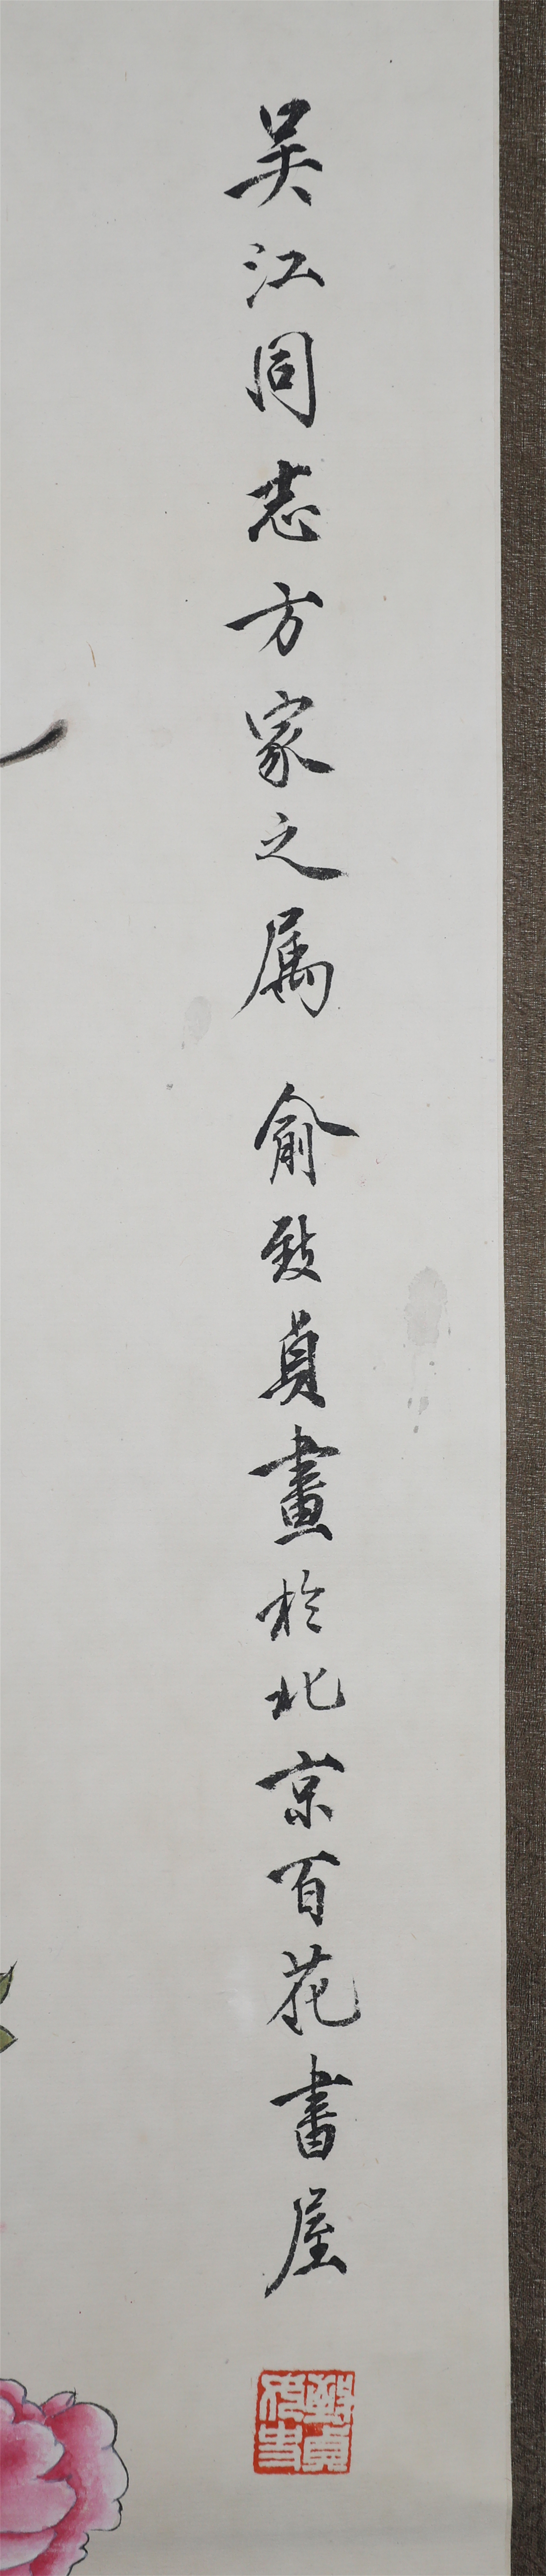 吴江同志方家之属 俞致貞畫於北京百花書屋